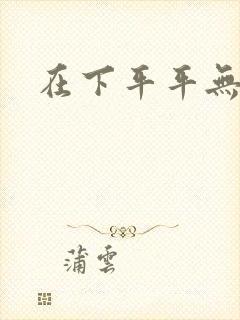 在下平平無
蒲雲